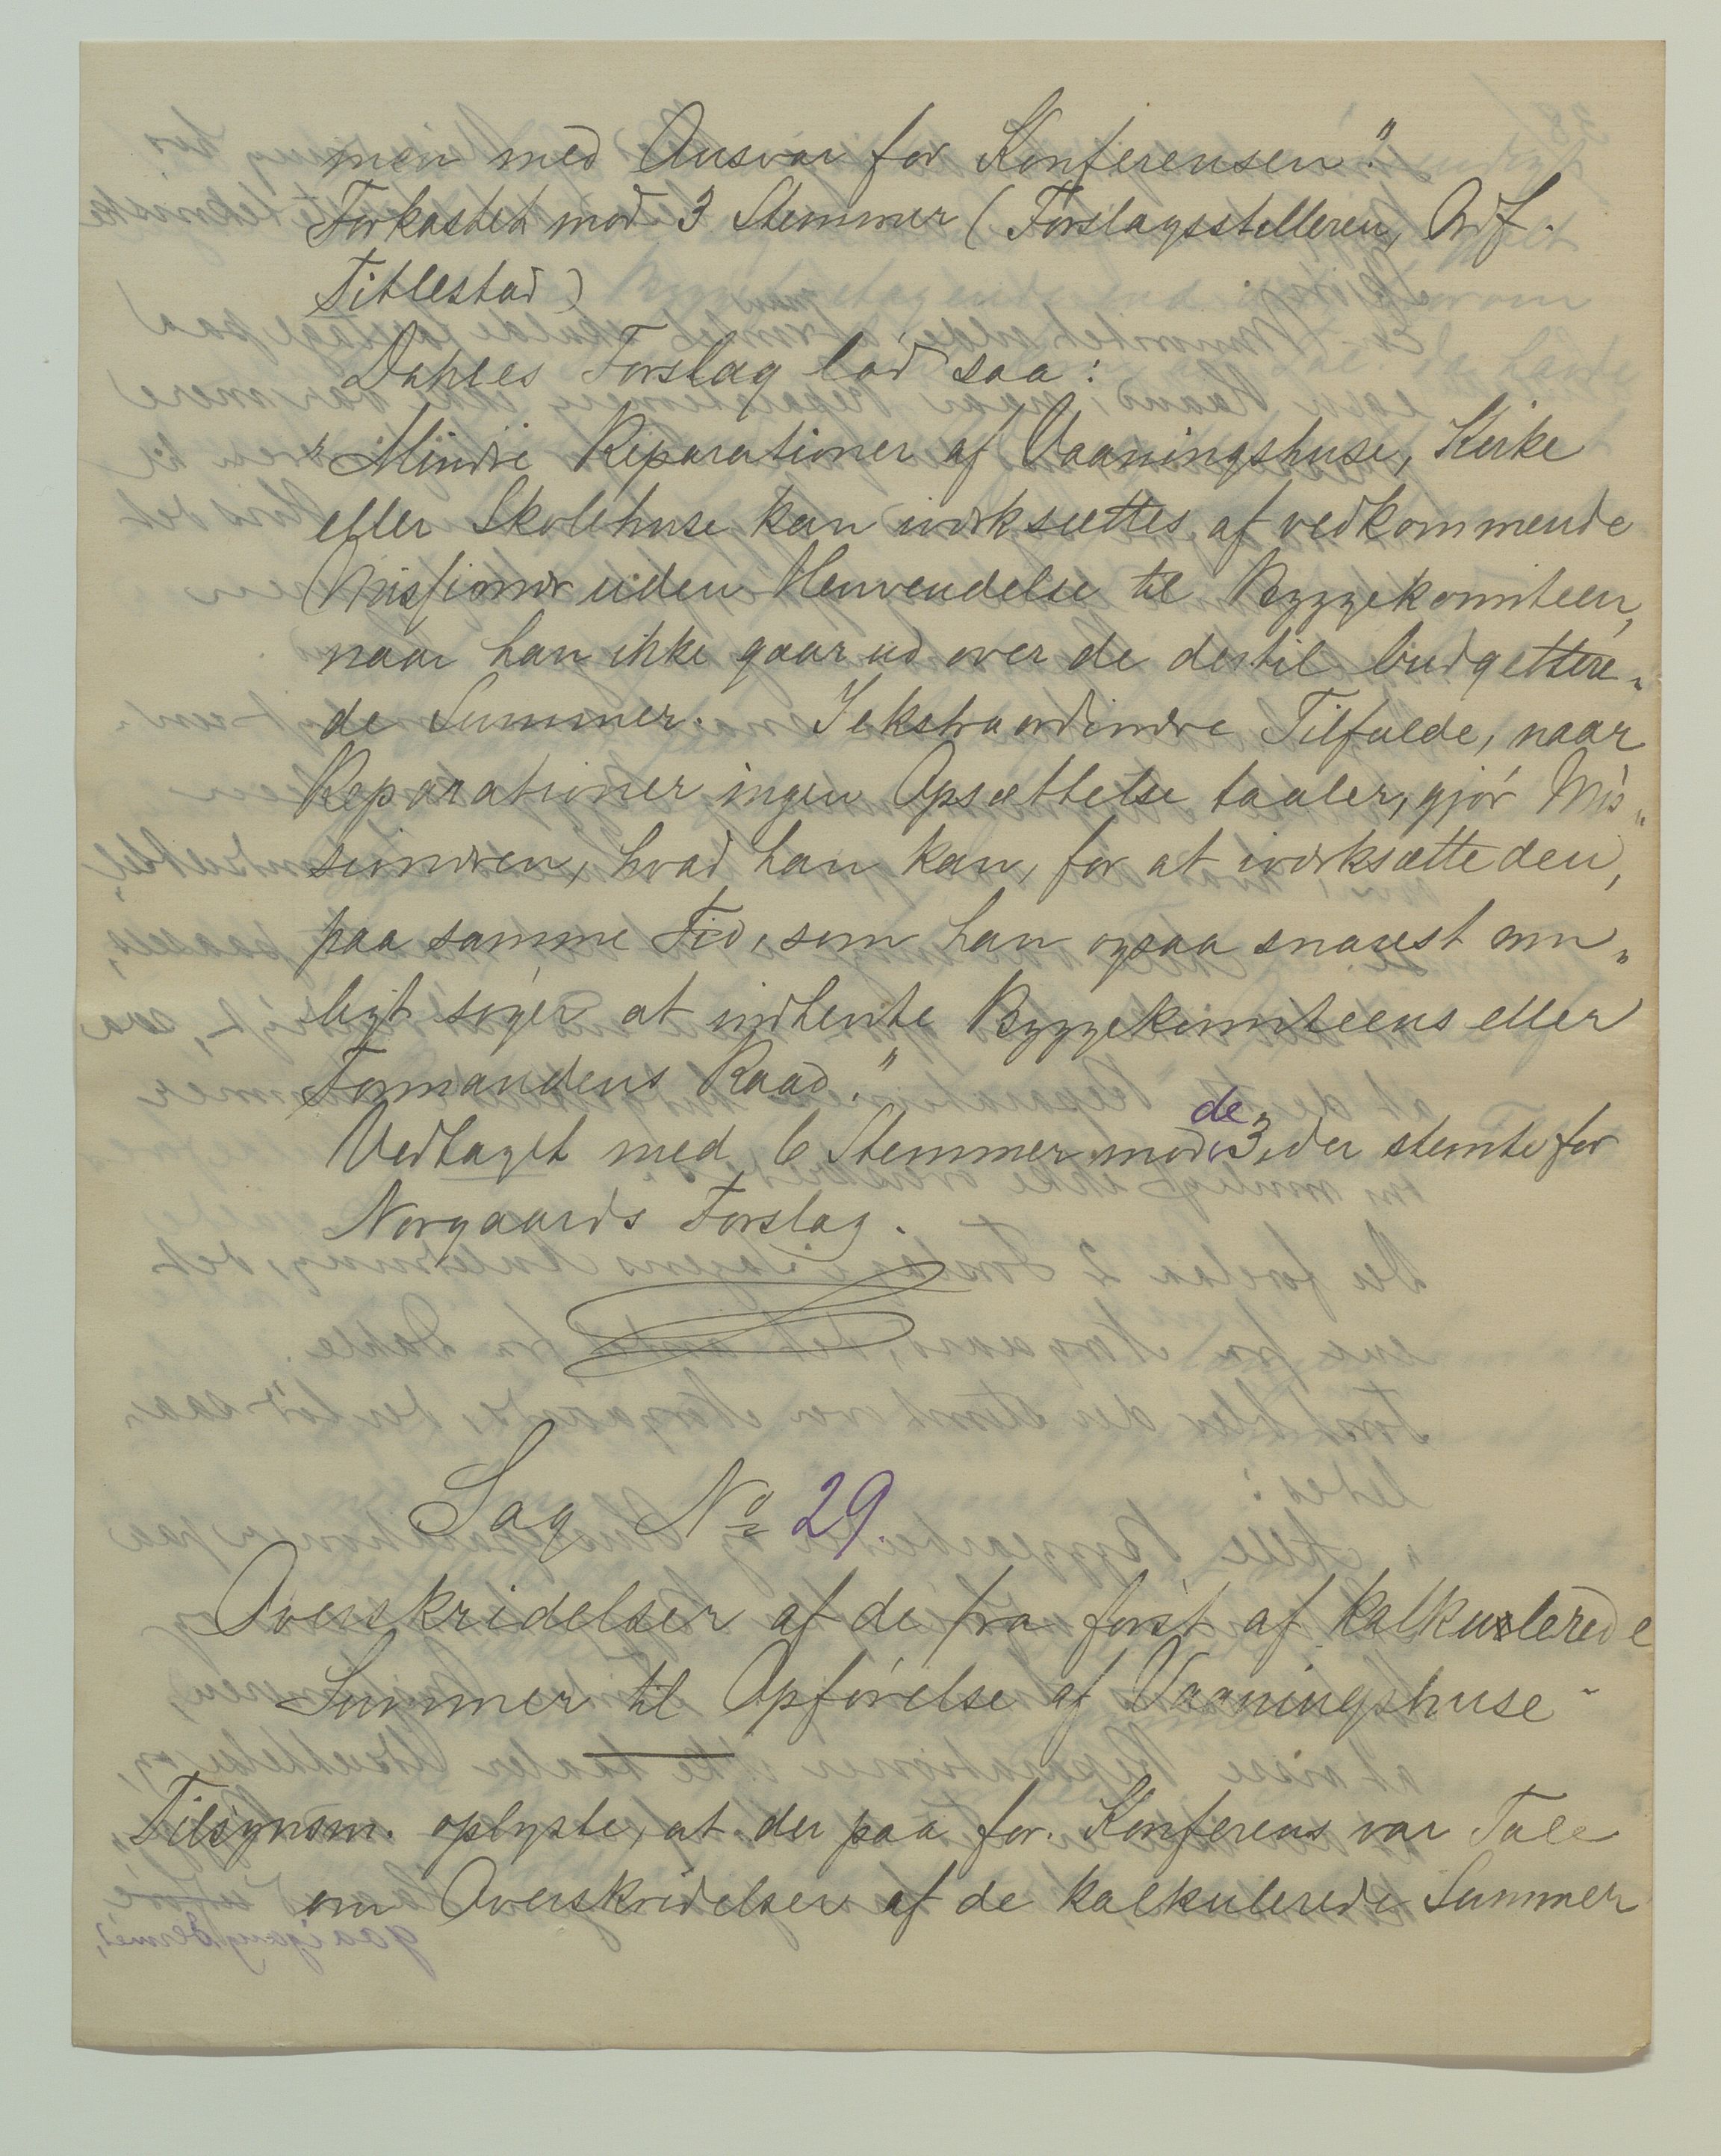 men med Ansvar for Konferensen."
Forkastet mod 3 Stemmer (Forslagsstilleren, Ordf.
Titlestad)
Dahles Forslag lød saa:
"Mindre Reparationer af Vaaningshuse, Kirke
eller Skolehuse kan iværksættes af vedkommende
Missionær uden Henvendelse til Byggekomiteen,
naar han ikke gaar ud over de dertil budgettere-
de Summer. I ekstraordinære Tilfælde, naar
Reparationer ingen Opsættelse taaler, gjør Mis-
sionæren, hvad han kan, for at iværksætte den,
paa samme Tid, som han ogsaa snarest mu-
ligt søger at indhente Byggekomiteens eller
Formandens Raad."
Vedtaget med 6 Stemmer mod de 3, der stemte for
Norgaards Forslag.
Sag No 29.
Overskridelser af de fra først af kalkulerede
Summer til Opførelse af Vaaningshuse-
Tilsynsm. oplyste, at der paa for. Konferens var Tale
om Overskridelser af de kalkulerede Summer